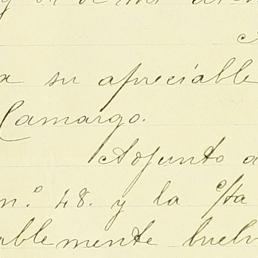 a su apreciable
Camargo.
Adjunto a
n.º 48. y la c/ta
ablemente buelv